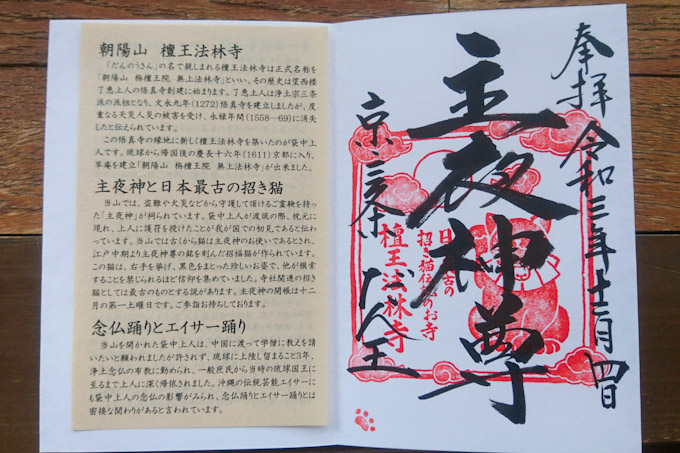 朝陽山 檀王法林寺
「だんのうさん」の名で親しまれる檀王法林寺は正式名称を
「朝陽山 栴檀王院 無上法林寺」といい、その歴史は望西楼
了恵上人の悟真寺創建に始まります。了恵上人は浄土宗三条
派の派祖となり、文永九年(1272)悟真寺を建立しましたが、度
重なる天災人災の被害を受け、永禄年間(1558―69)に消失
したと伝えられています。
この悟真寺の縁地に新しく檀王法林寺を築いたのが袋中上
人です。琉球から帰国後の慶長十六年(1611)京都に入り、
草庵を建立「朝陽山 栴檀王院 無上法林寺」が出来ました。
主夜神と日本最古の招き猫
当山では、盗難や火災などから守護して頂けるご霊験を持っ
た「主夜神」が祀られています。袋中上人が渡流の際、枕元に
現れ、上人に護符を授けたことが我が国での初見であると伝わ
っています。当山では古くから猫は主夜神のお使いであるとされ、
江戸中期より主夜神尊の銘を刻んだ招福猫が作られています。
この猫は、右手を挙げ、黒色をまとった珍しいお姿で、他が模索
することを禁じられるほど信仰を集めていました。寺社関連の招き
猫としては最古のものとする説があります。主夜神の開帳は十二
月の第一土曜日です。ご参詣お待ちしております。
念仏踊りとエイサー踊り
当山を開かれた袋中上人は、中国に渡って学僧に教えを請
いたいと願われましたが許されず、琉球に上陸し留まること3年、
浄土念仏の布教に勤められ、一般庶民から当時の琉球国王に
至るまで上人に深く帰依されました。沖縄の伝統芸能エイサーに
も袋中上人の念仏の影響がみられ、念仏踊りとエイサー踊りとは
密接な関わりがあると言われています。
奉拝 令和三年十二月四日
主夜神尊
京・三条 だん王
招き猫伝説のお寺
檀王法林寺